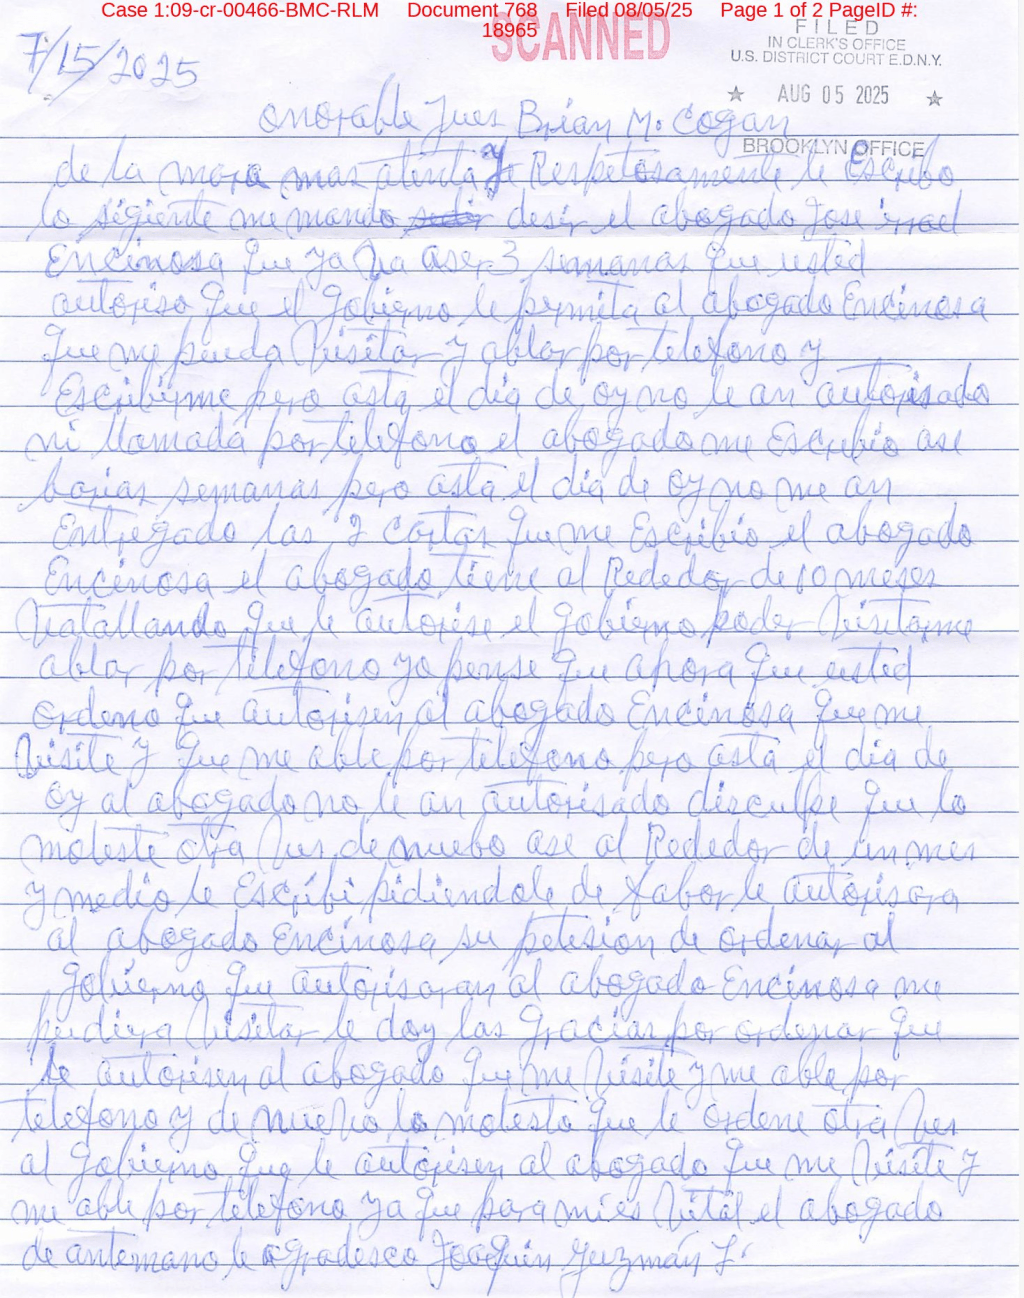 Case 1:09-cr-00466-BMC-RLM Document 768 Filed 08/05/25 Page 1 of 2 PageID #: 18965
SCANNED
FILED
IN CLERK'S OFFICE
U.S. DISTRICT COURT E.D.N.Y.
★ AUG 05 2025 ★
BROOKLYN OFFICE
7/15/2025
onorable Jues Brian M. Cogan
de la mara mas atenta y Respetosamente le Escribo
lo sigiente me mando desir el abogado Jose irrael
Encinosa que ya va aser 3 semanas que usted
autoriso que el gobierno le permita al abogado Encinosa
que me pueda Visitar y ablar por telefono y
Escribirme pero asta el dia de oy no le an autorisado
ni llamada por telefono el abogado me Escribio ase
barias semanas pero asta el dia de oy no me an
Entregado las 2 cartas que me Escribio el abogado
Encinosa el abogado tiene al Rededor de 10 meses
Vatallando que le autorise el gobierno poder Visitarme
ablar por telefono yo pense que ahora que usted
ordeno que autorisen al abogado Encinosa que me
Visite y que me able por telefono pero asta el dia de
oy al abogado no le an autorisado disculpe que lo
moleste otra Ves de nuebo ase al Rededor de un mes
y medio le Escribi pidiendole de fabor le autorisara
al abogado Encinosa su petision de ordenar al
gobierno que autorisaran al abogado Encinosa me
pudiera Visitar le doy las gracias por ordenar que
le autorisen al abogado que me Visite y me able por
telefono y de nuevo lo molesto que le ordene otra Ves
al gobierno que le autorisen al abogado que me Visite y
me able por telefono ya que para mi es Vital el abogado
de antemano le agradesco Joaquin Guzmán L.